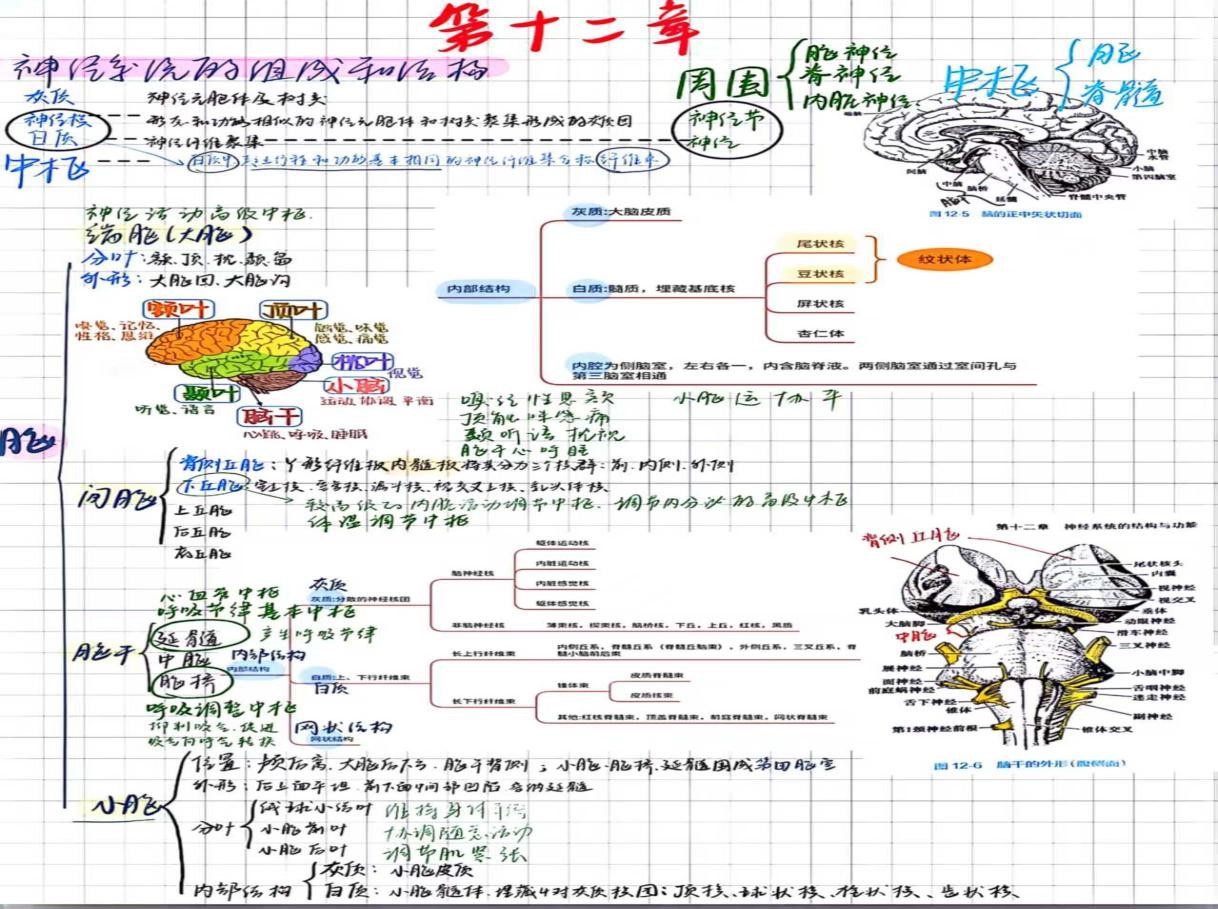 第十二章
神经系统的组成和结构
周围
脑神经
脊神经
内脏神经
中枢
脑
脊髓
灰质 神经元胞体及树突
神经核 形态和功能相似的神经元胞体和树突聚集形成的灰质团 神经节
白质 神经纤维聚集 神经
中枢 白质中起止行程和功能基本相同的神经纤维集合称纤维束
间脑
中脑
脑桥
延髓
脊髓中央管
中脑水管
小脑
第四脑室
图 12-5 脑的正中矢状切面
神经活动高级中枢
端脑(大脑)
分叶:额、顶、枕、颞、岛
外形:大脑回、大脑沟
额叶
顶叶
嗅觉、记忆、
性格、思维
触觉、味觉
感觉、痛觉
枕叶
视觉
颞叶
听觉、语言
小脑
运动 协调 平衡
脑干
心跳、呼吸、睡眠
内部结构
灰质:大脑皮质
白质:髓质,埋藏基底核
尾状核
豆状核
纹状体
屏状核
杏仁体
内腔为侧脑室,左右各一,内含脑脊液。两侧脑室通过室间孔与
第三脑室相通
小脑运协平
颞听语 枕视
脑干心呼睡
脑
间脑
背侧丘脑:Y形纤维板内髓板将其分为三个核群:前、内侧、外侧
下丘脑:室上核、室旁核、漏斗核、视交叉上核、乳头体核
较高级的内脏活动调节中枢、调节内分泌的高级中枢
体温调节中枢
上丘脑
后丘脑
底丘脑
心血管中枢
呼吸节律基本中枢
脑干
延髓 产生呼吸节律
中脑
脑桥
呼吸调整中枢
抑制吸气、促进
吸气向呼气转换
内部结构
内部结构
灰质
灰质:分散的神经核团
脑神经核
躯体运动核
内脏运动核
内脏感觉核
躯体感觉核
非脑神经核
薄束核,楔束核,脑桥核,下丘,上丘,红核,黑质
白质:上、下行纤维束
白质
长上行纤维束
内侧丘系,脊髓丘系(脊髓丘脑束),外侧丘系,三叉丘系,脊
髓小脑前后束
长下行纤维束
锥体束
皮质脊髓束
皮质核束
其他:红核脊髓束,顶盖脊髓束,前庭脊髓束,网状脊髓束
网状结构
网状结构
第十二章 神经系统的结构与功能
背侧丘脑
尾状核头
内囊
视神经
视交叉
垂体
动眼神经
滑车神经
三叉神经
小脑中脚
舌咽神经
迷走神经
副神经
锥体交叉
乳头体
大脑脚
中脑
脑桥
展神经
面神经
前庭蜗神经
舌下神经
锥体
第1颈神经前根
图 12-6 脑干的外形(腹侧面)
小脑
位置:颅后窝、大脑后下方、脑干背侧;小脑、脑桥、延髓围成第四脑室
外形:后上面平坦、前下面中间部凹陷容纳延髓
分叶
绒球小结叶 维持身体平衡
小脑前叶 协调随意活动
小脑后叶 调节肌紧张
内部结构
灰质:小脑皮质
白质:小脑髓体、埋藏4对灰质核团:顶核、球状核、栓状核、齿状核